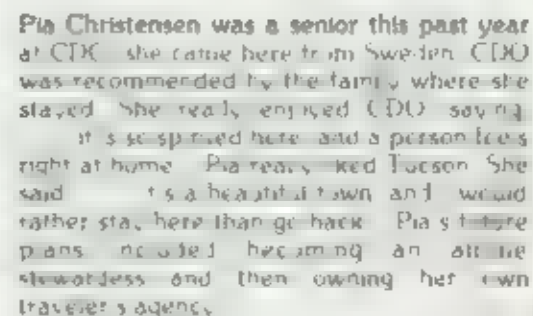 Pia Christensen was a senior this past year
at CDO she came here from Sweden CDO
was recommended by the family where she
stayed She really enjoyed CDO saying
it s so spirited here and a person feels
right at home Pia really liked Tucson She
said it s a beautiful town and I would
rather stay here than go back Pia s future
plans included becoming an airline
stewardess and then owning her own
traveler s agency